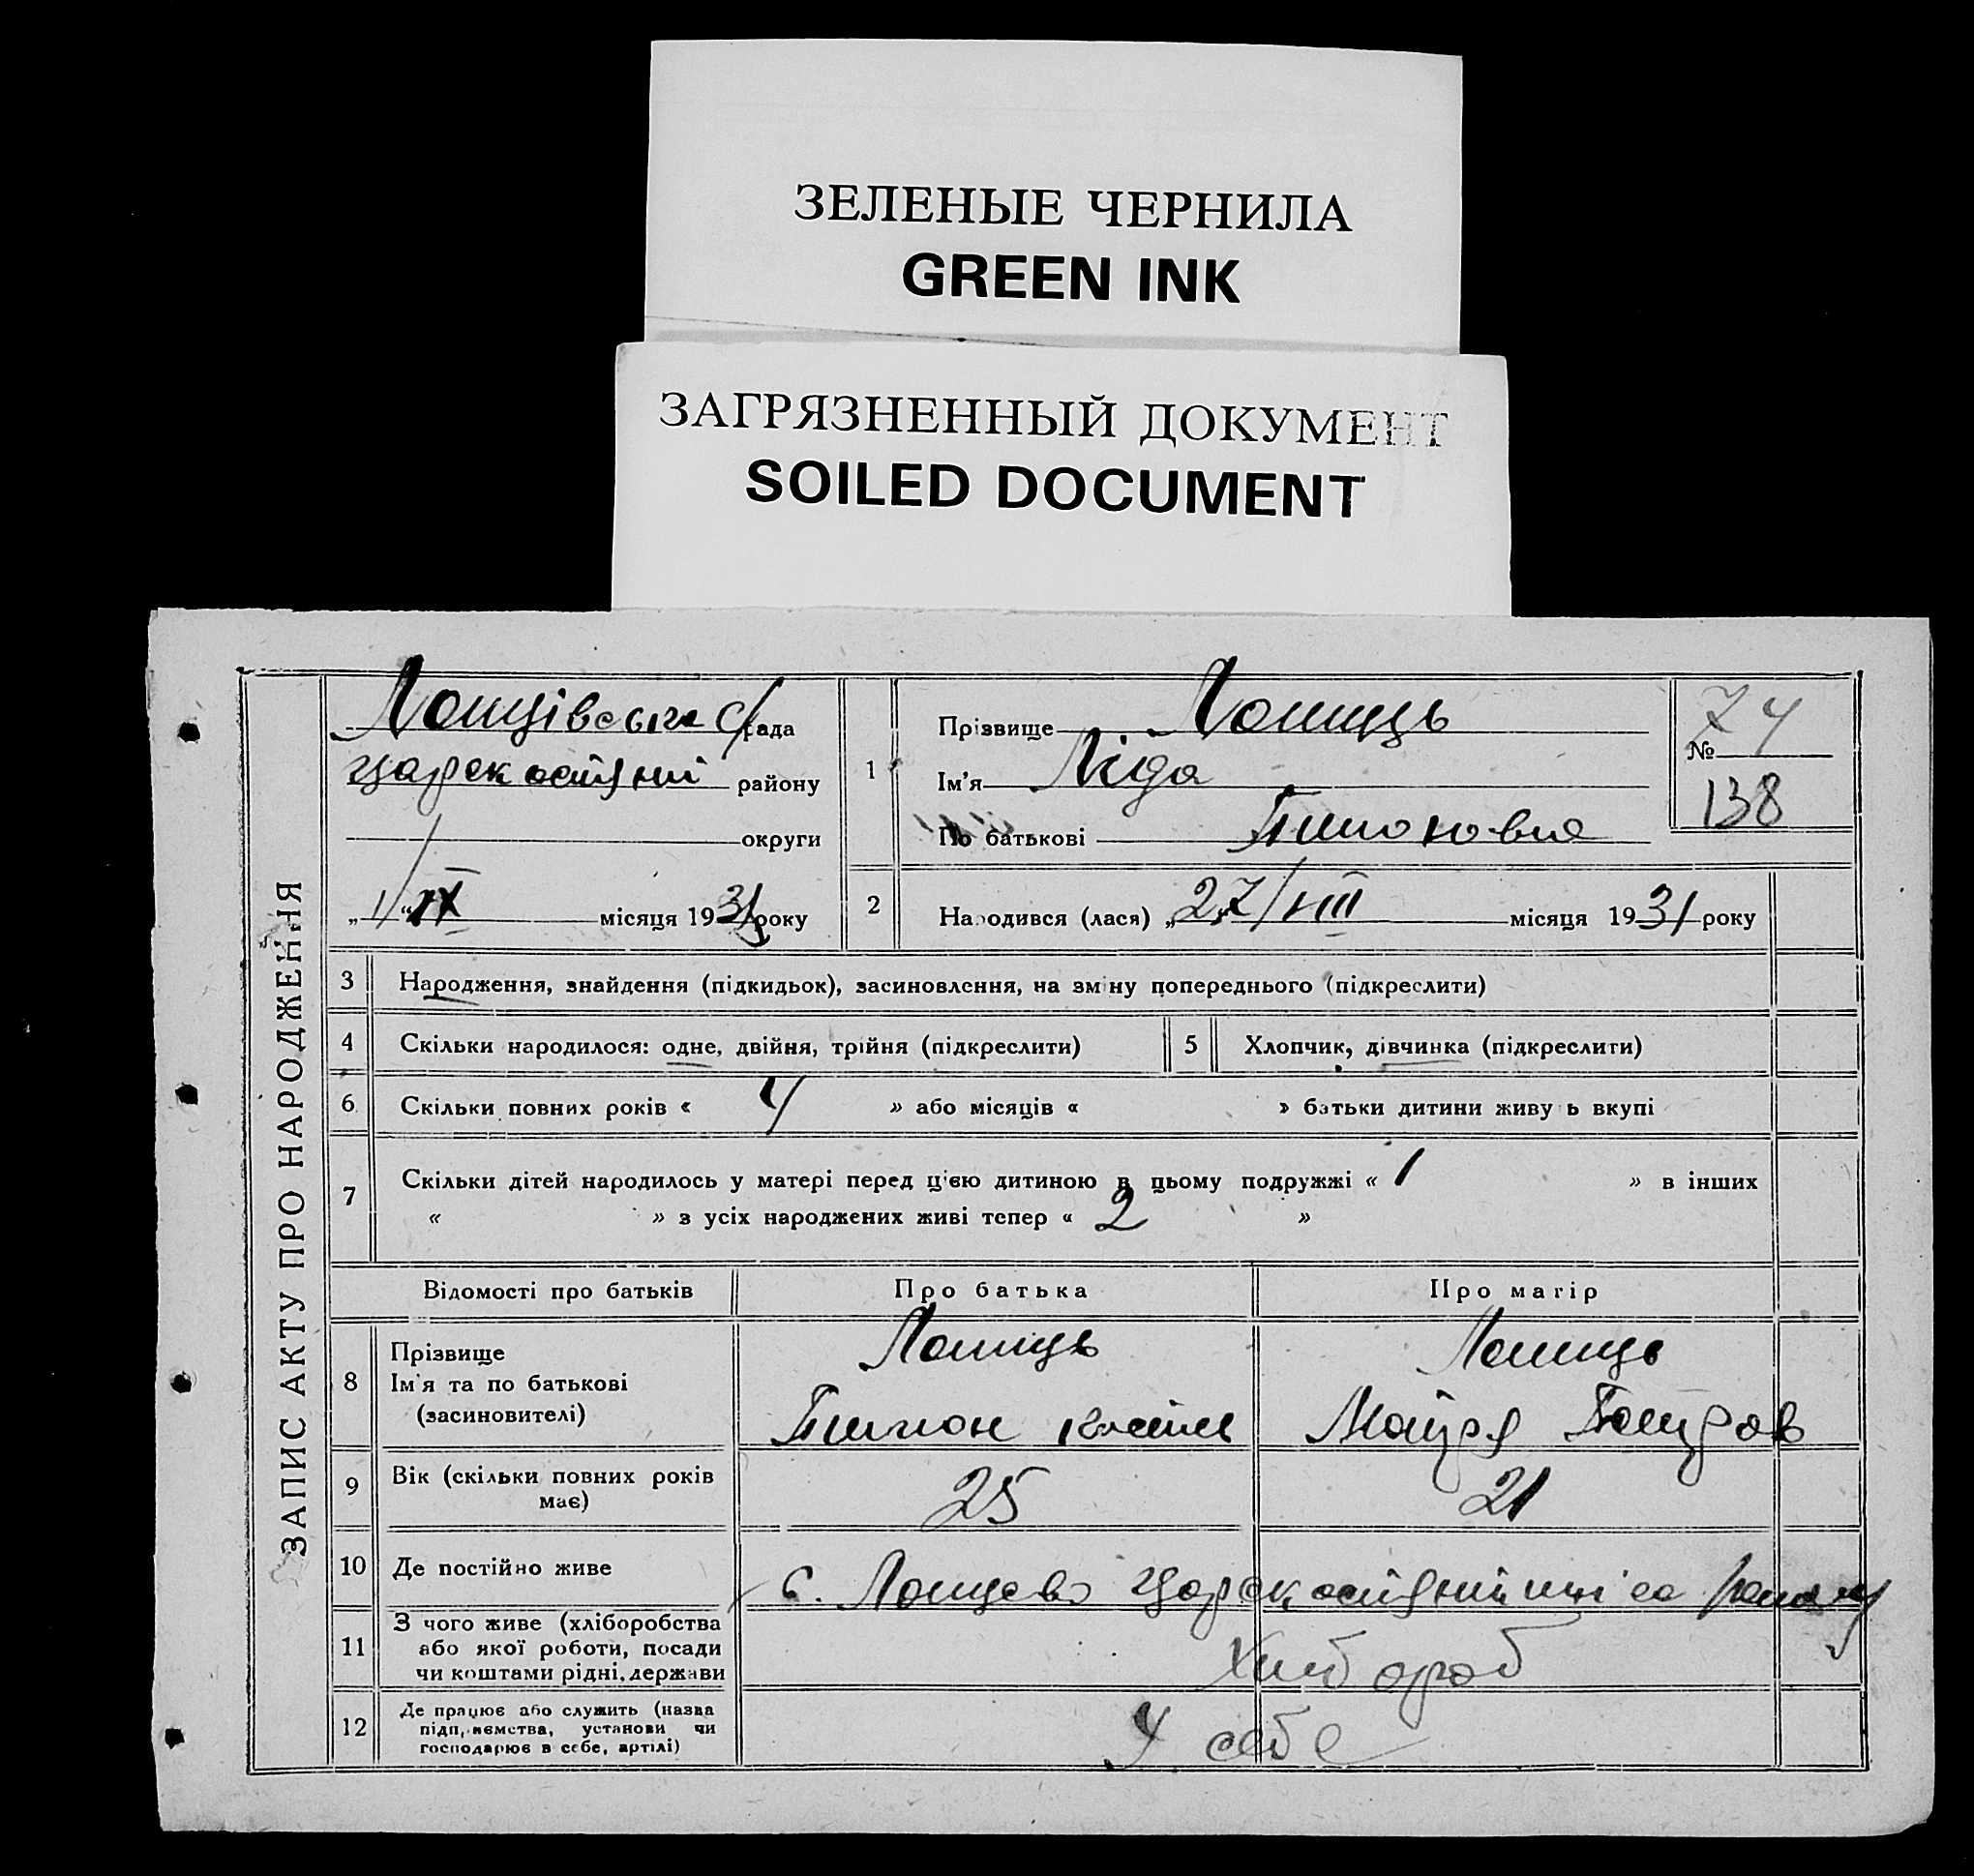 ЗЕЛЕНЫЕ ЧЕРНИЛА
GREEN INK
ЗАГРЯЗНЕННЫЙ ДОКУМЕНТ
SOILED DOCUMENT
ЗАПИС АКТУ ПРО НАРОДЖЕННЯ
рада
району
округи
„1“ IX місяця 1931 року
1 Прізвище
Ім'я Ліда
По батькові
74
№
138
2 Народився (лася) „27/VIII місяця 1931 року
3 Народження, знайдення (підкидьок), засиновлення, на зміну попереднього (підкреслити)
4 Скільки народилося: одне, двійня, трійня (підкреслити)
5 Хлопчик, дівчинка (підкреслити)
6 Скільки повних років « 4 » або місяців « » батьки дитини живуть вкупі
7 Скільки дітей народилось у матері перед ц'єю дитиною в цьому подружжі « 1 » в інших
« » з усіх народжених живі тепер « 2 »
Відомості про батьків Про батька Про матір
8 Прізвище
Ім'я та по батькові
(засиновителі)
9 Вік (скільки повних років
має) 25 21
10 Де постійно живе с.
11 З чого живе (хліборобства
або якої роботи, посади
чи коштами рідні, держави
Хлібороб
12 Де працює або служить (назва
підприємства, установи чи
господарює в себе, артілі)
У себе